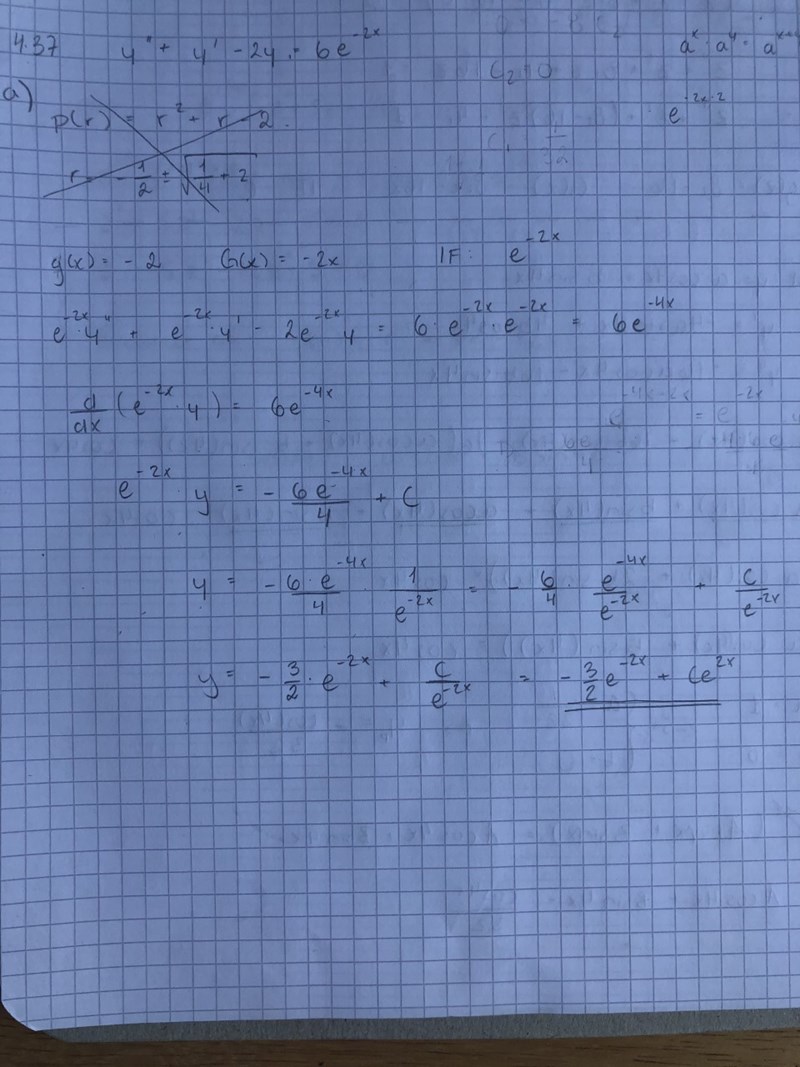 4.37 y'' + y' - 2y = 6e^{-2x} a^x · a^y = a^{x+y}
a) p(r) = r^2 + r - 2 e^{-2x·2}
r = -\frac{1}{2} ± \sqrt{\frac{1}{4} + 2}
g(x) = -2 G(x) = -2x IF: e^{-2x}
e^{-2x} · y'' + e^{-2x} · y' - 2e^{-2x} y = 6 · e^{-2x} · e^{-2x} = 6e^{-4x}
\frac{d}{dx} (e^{-2x} · y) = 6e^{-4x}
e^{-2x} y = -\frac{6e^{-4x}}{4} + C
y = -\frac{6 · e^{-4x}}{4} · \frac{1}{e^{-2x}} = -\frac{6}{4} · \frac{e^{-4x}}{e^{-2x}} + \frac{C}{e^{-2x}}
y = -\frac{3}{2} · e^{-2x} + \frac{C}{e^{-2x}} = -\frac{3}{2} e^{-2x} + Ce^{2x}